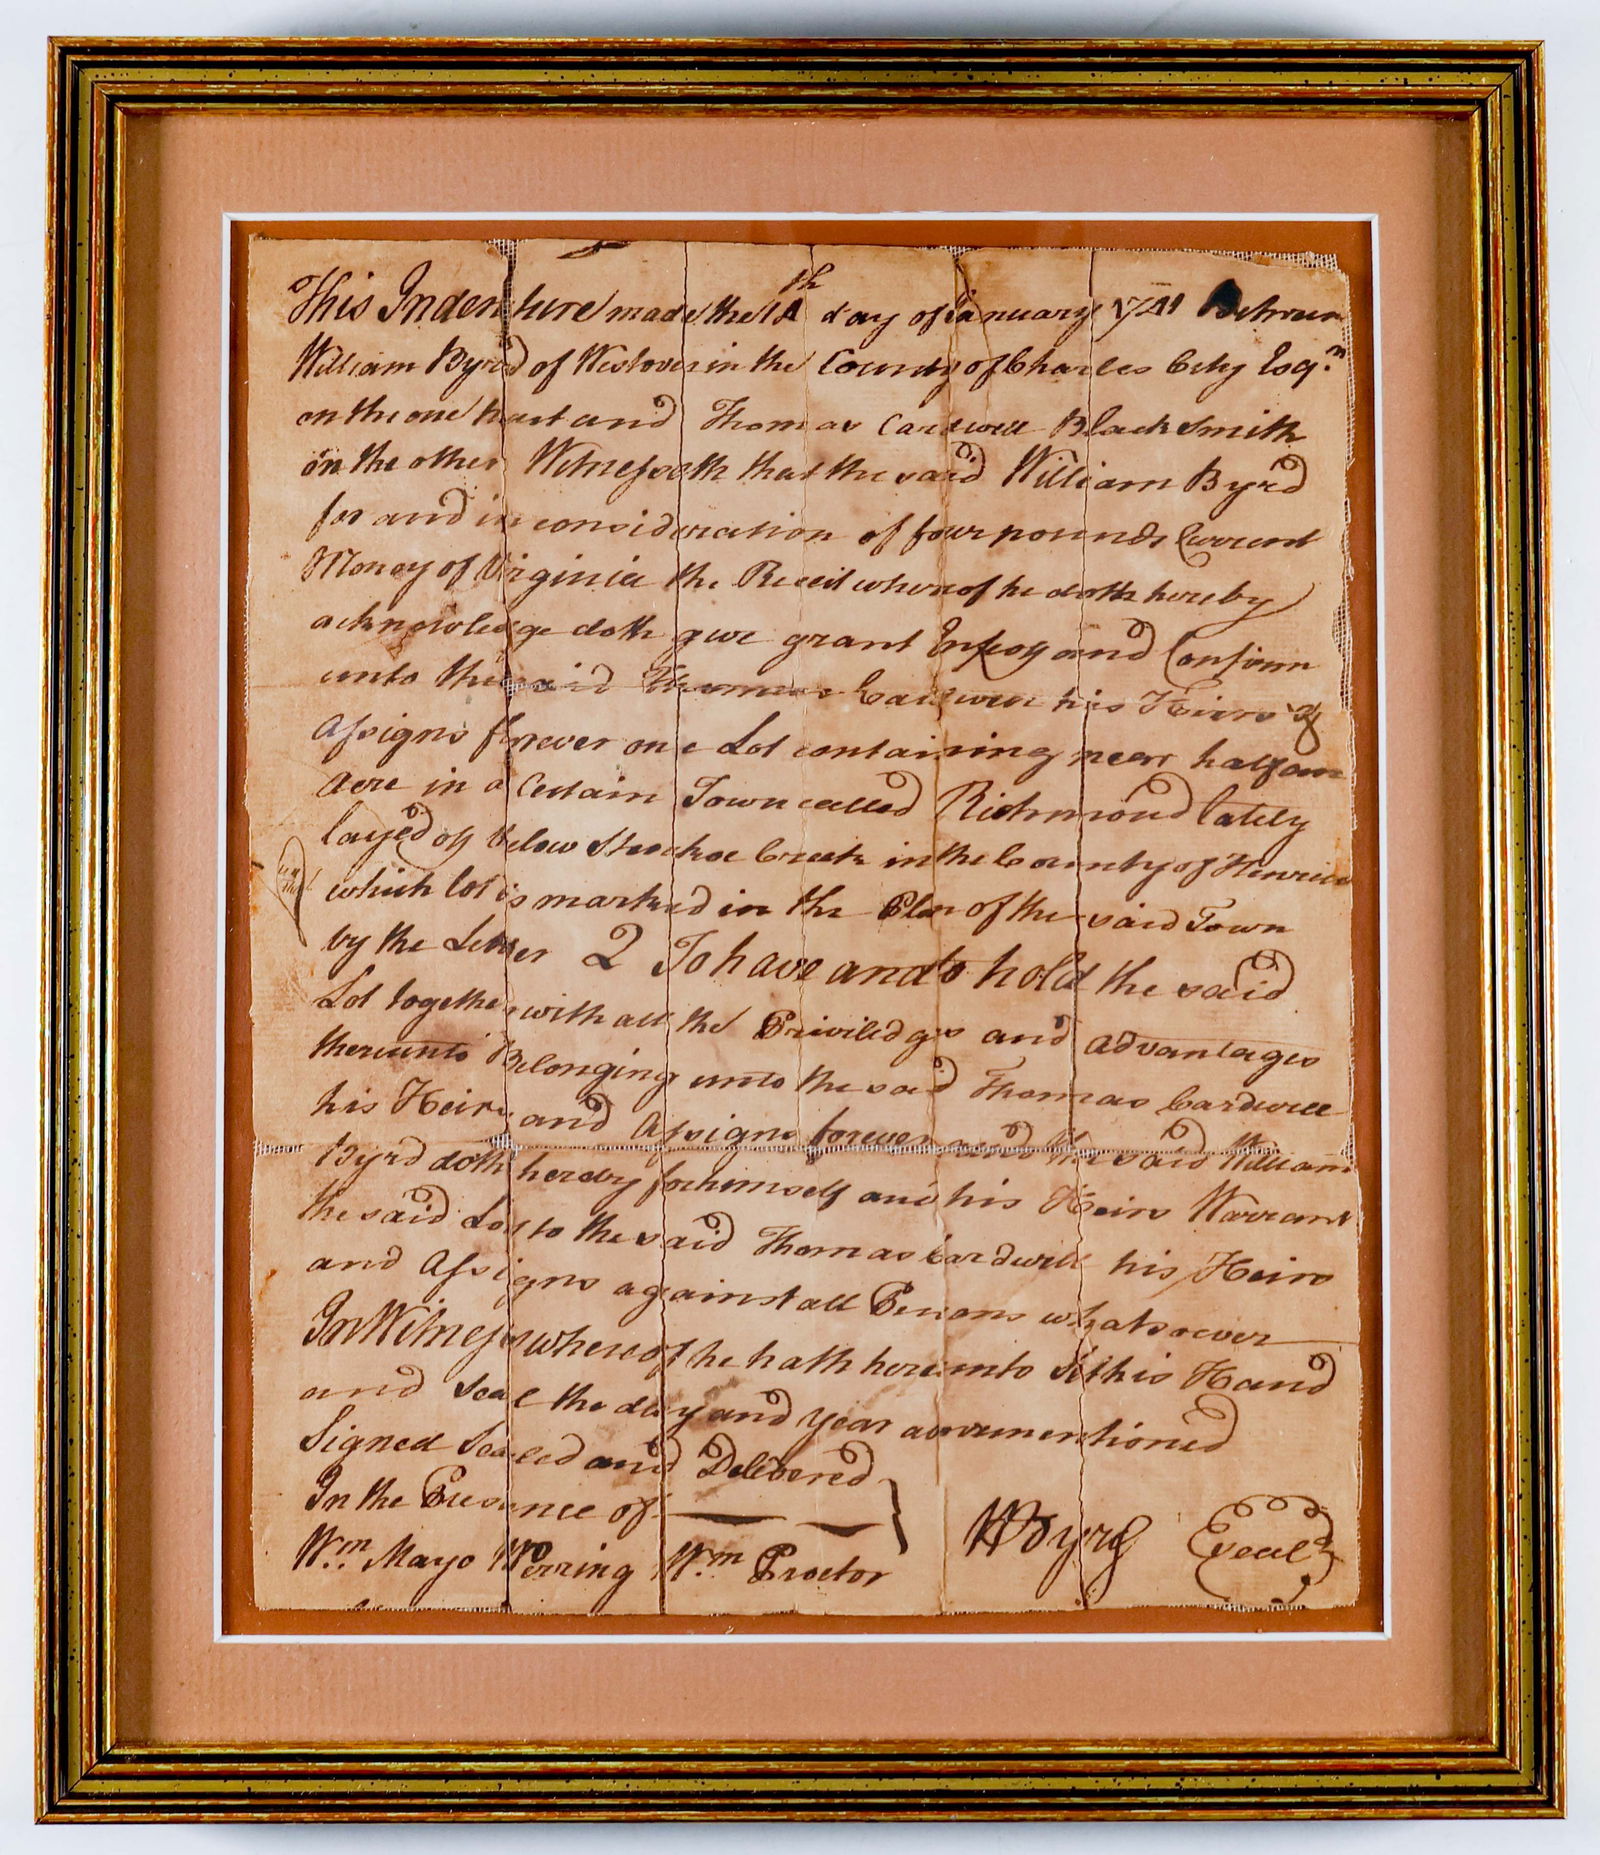 This Indenture made the 14th day of January 1741 Between
William Byrd of Westover in the County of Charles City Esqr.
on the one part and Thomas Cardwell Black Smith
on the other Witnesseth that the said William Byrd
for and in consideration of four pounds Current
Money of Virginia the Receit whereof he doth hereby
acknowledge doth give grant Enfeoff and Confirm
unto the said Thomas Cardwell his Heirs &
Assigns forever one Lot containing near half an
acre in a Certain Town called Richmond lately
layed off below Shockoe Creek in the County of Henrico
which lot is marked in the Plan of the said Town
by the Letter Q To have and to hold the said
Lot together with all the Priviledges and advantages
thereunto Belonging unto the said Thomas Cardwell
his Heirs and Assigns forever and the said William
Byrd doth hereby for himself and his Heirs Warrant
the said Lot to the said Thomas Cardwell his Heirs
and Assigns against all Persons whatsoever
In Witness whereof he hath hereunto Set his Hand
and Seal the day and year abovementioned
Signed Sealed and Delivered
In the Presence of
Wm. Mayo W Perring Wm Proctor
W Byrd Seal